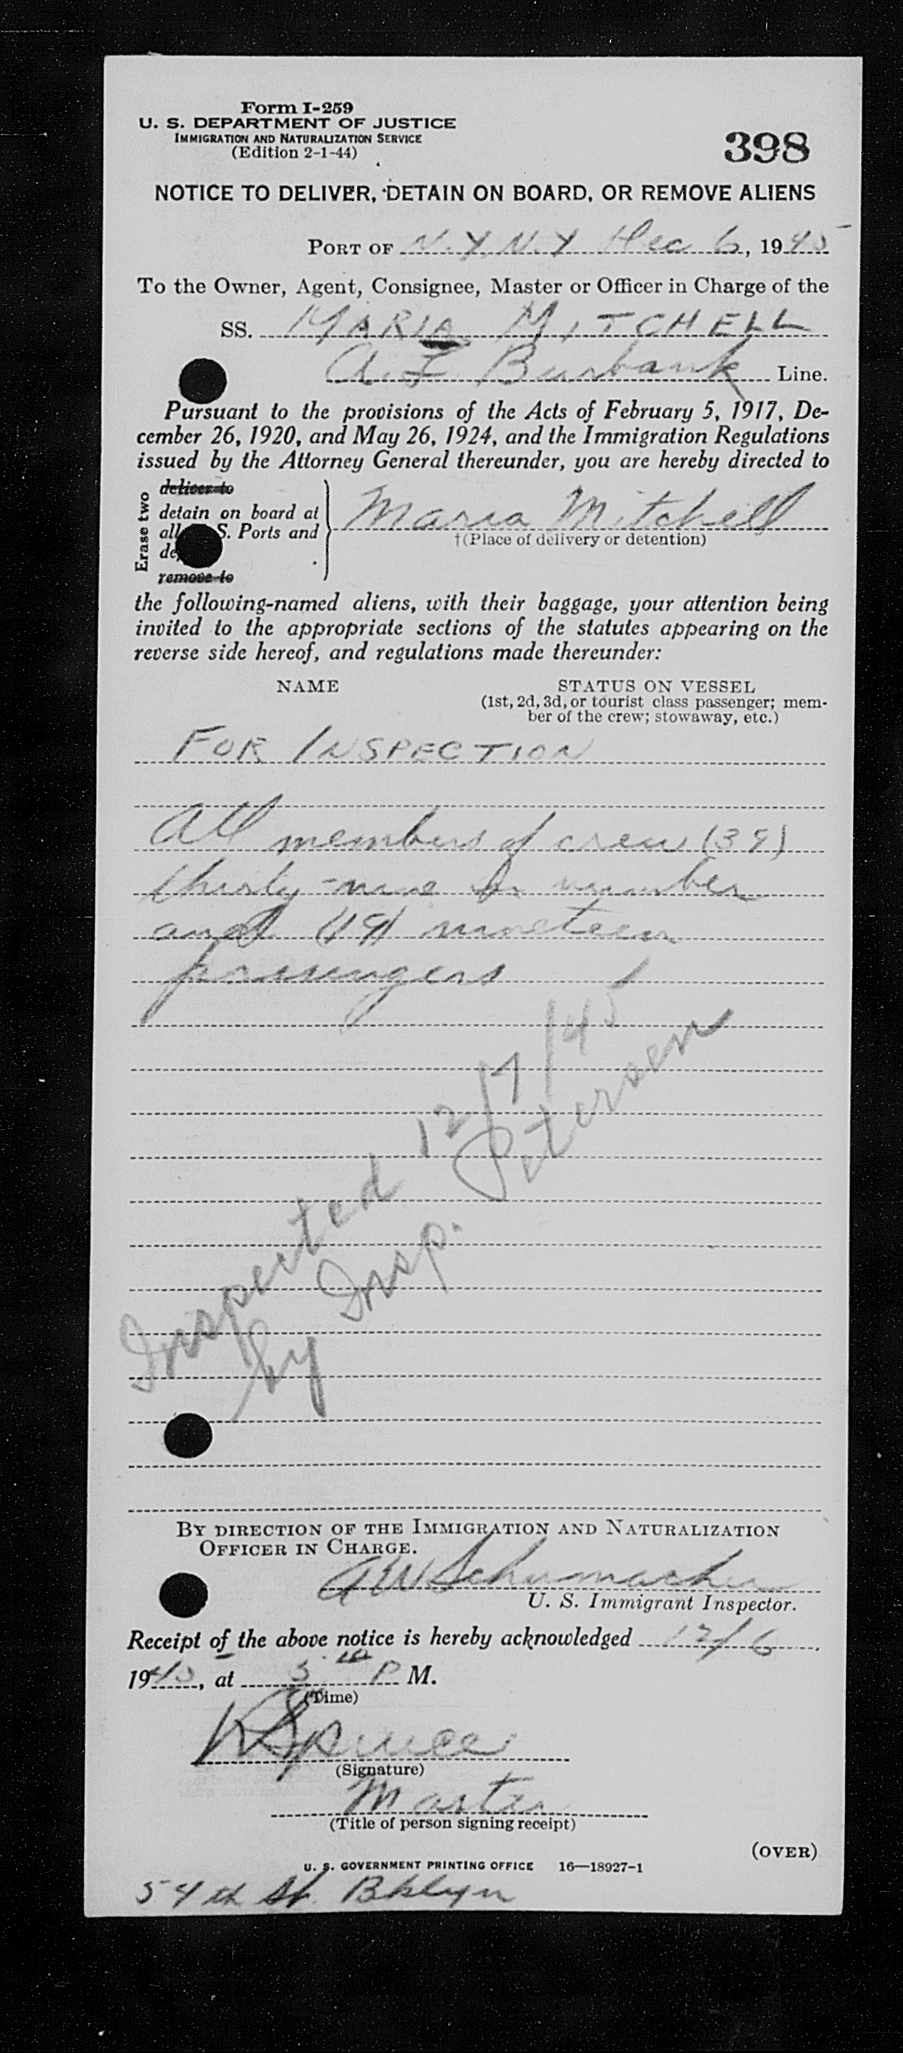 Form I-259
U. S. DEPARTMENT OF JUSTICE
IMMIGRATION AND NATURALIZATION SERVICE
(Edition 2-1-44)
398
NOTICE TO DELIVER, DETAIN ON BOARD, OR REMOVE ALIENS
PORT OF N.Y. N.Y Dec 6, 1945
To the Owner, Agent, Consignee, Master or Officer in Charge of the
SS. MARIA MITCHELL
A. L Burbank Line.
Pursuant to the provisions of the Acts of February 5, 1917, De-
cember 26, 1920, and May 26, 1924, and the Immigration Regulations
issued by the Attorney General thereunder, you are hereby directed to
Erase two
deliver to
detain on board at
all S. Ports and
de
remove to
Maria Mitchell
†(Place of delivery or detention)
the following-named aliens, with their baggage, your attention being
invited to the appropriate sections of the statutes appearing on the
reverse side hereof, and regulations made thereunder:
NAME STATUS ON VESSEL
(1st, 2d, 3d, or tourist class passenger; mem-
ber of the crew; stowaway, etc.)
FOR INSPECTION
All members of crew (39)
thirty-nine in number
and (19) nineteen
passengers
Inspected 12/7/45
by Insp. Petersen
BY DIRECTION OF THE IMMIGRATION AND NATURALIZATION
OFFICER IN CHARGE.
A W Schumacher
U. S. Immigrant Inspector.
Receipt of the above notice is hereby acknowledged 12/6
1945, at 5 10 P M.
(Time)
Spruce
(Signature)
Master
(Title of person signing receipt)
(OVER)
U. S. GOVERNMENT PRINTING OFFICE 16—18927-1
54th St. Bklyn